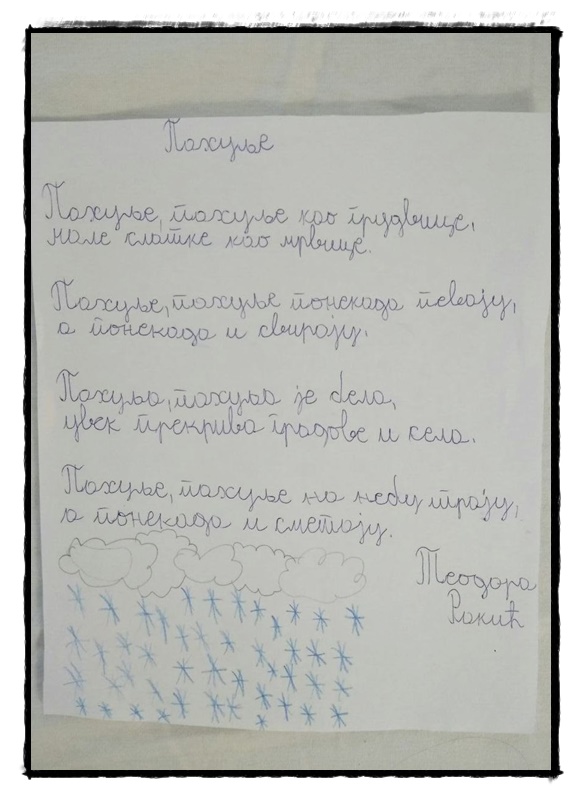 Пахуље
Пахуље, пахуље као грудвице,
мале слатке као мрвице.
Пахуље, пахуље понекада певају,
а понекада и свирају.
Пахуља, пахуља је бела,
увек прекрива градове и села.
Пахуље, пахуље на небу трају,
а понекада и сметају.
Теодора
Ракић